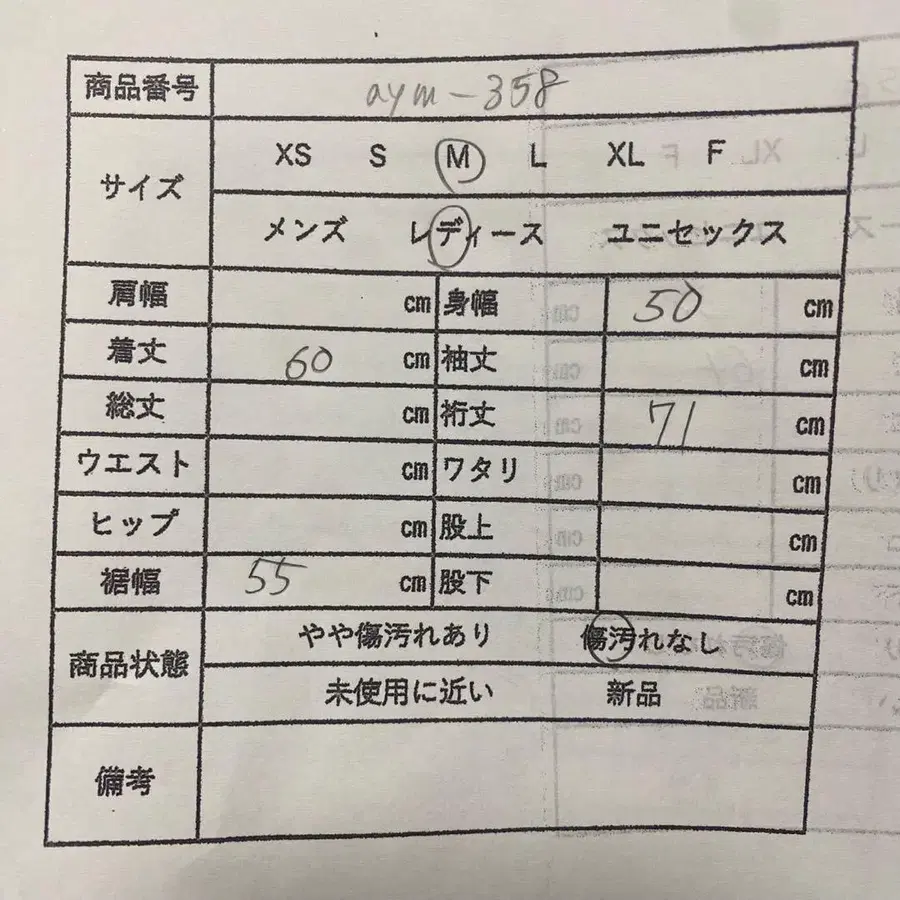 商品番号 aym-358
サイズ XS S M L XL F
メンズ レディース ユニセックス
肩幅 cm 身幅 50 cm
着丈 60 cm 袖丈 cm
総丈 cm 裄丈 71 cm
ウエスト cm ワタリ cm
ヒップ cm 股上 cm
裾幅 55 cm 股下 cm
商品状態 やや傷汚れあり 傷汚れなし
未使用に近い 新品
備考